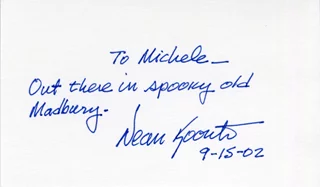 To Michele—
Out there in spooky old
Madbury.
Dean Koontz
9-15-02